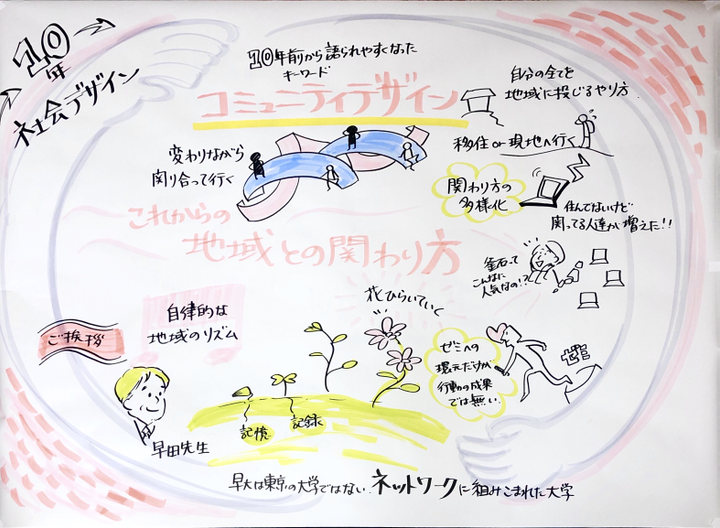 10年
社会デザイン
10年前から語られやすくなった
キーワード
コミュニティデザイン
自分の全てを
地域に投じるやり方
移住or現地へ行く
変わりながら
関り合って行く
関わり方の
多様化
住んでないけど
関ってる人達が増えた!!
これからの
地域との関わり方
釜石って
こんなに
人気なの!?
花ひらいていく
自律的な
地域のリズム
ご挨拶
早田先生
記憶
記録
ゼミへの
還元だけが
行動の成果
では無い
早大は東京の大学ではない ネットワークに組みこまれた大学